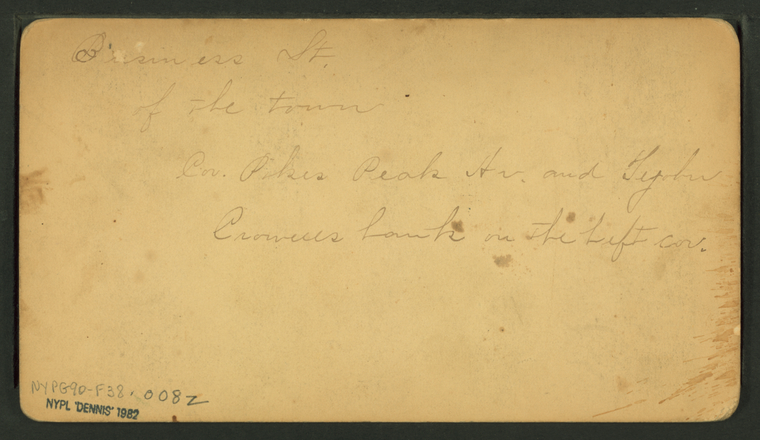 Business St.
of the town
Cor. Pikes Peak Av. and Tejohn
bank on the left cor.
NYPG90-F38.008z
NYPL 'DENNIS' 1982